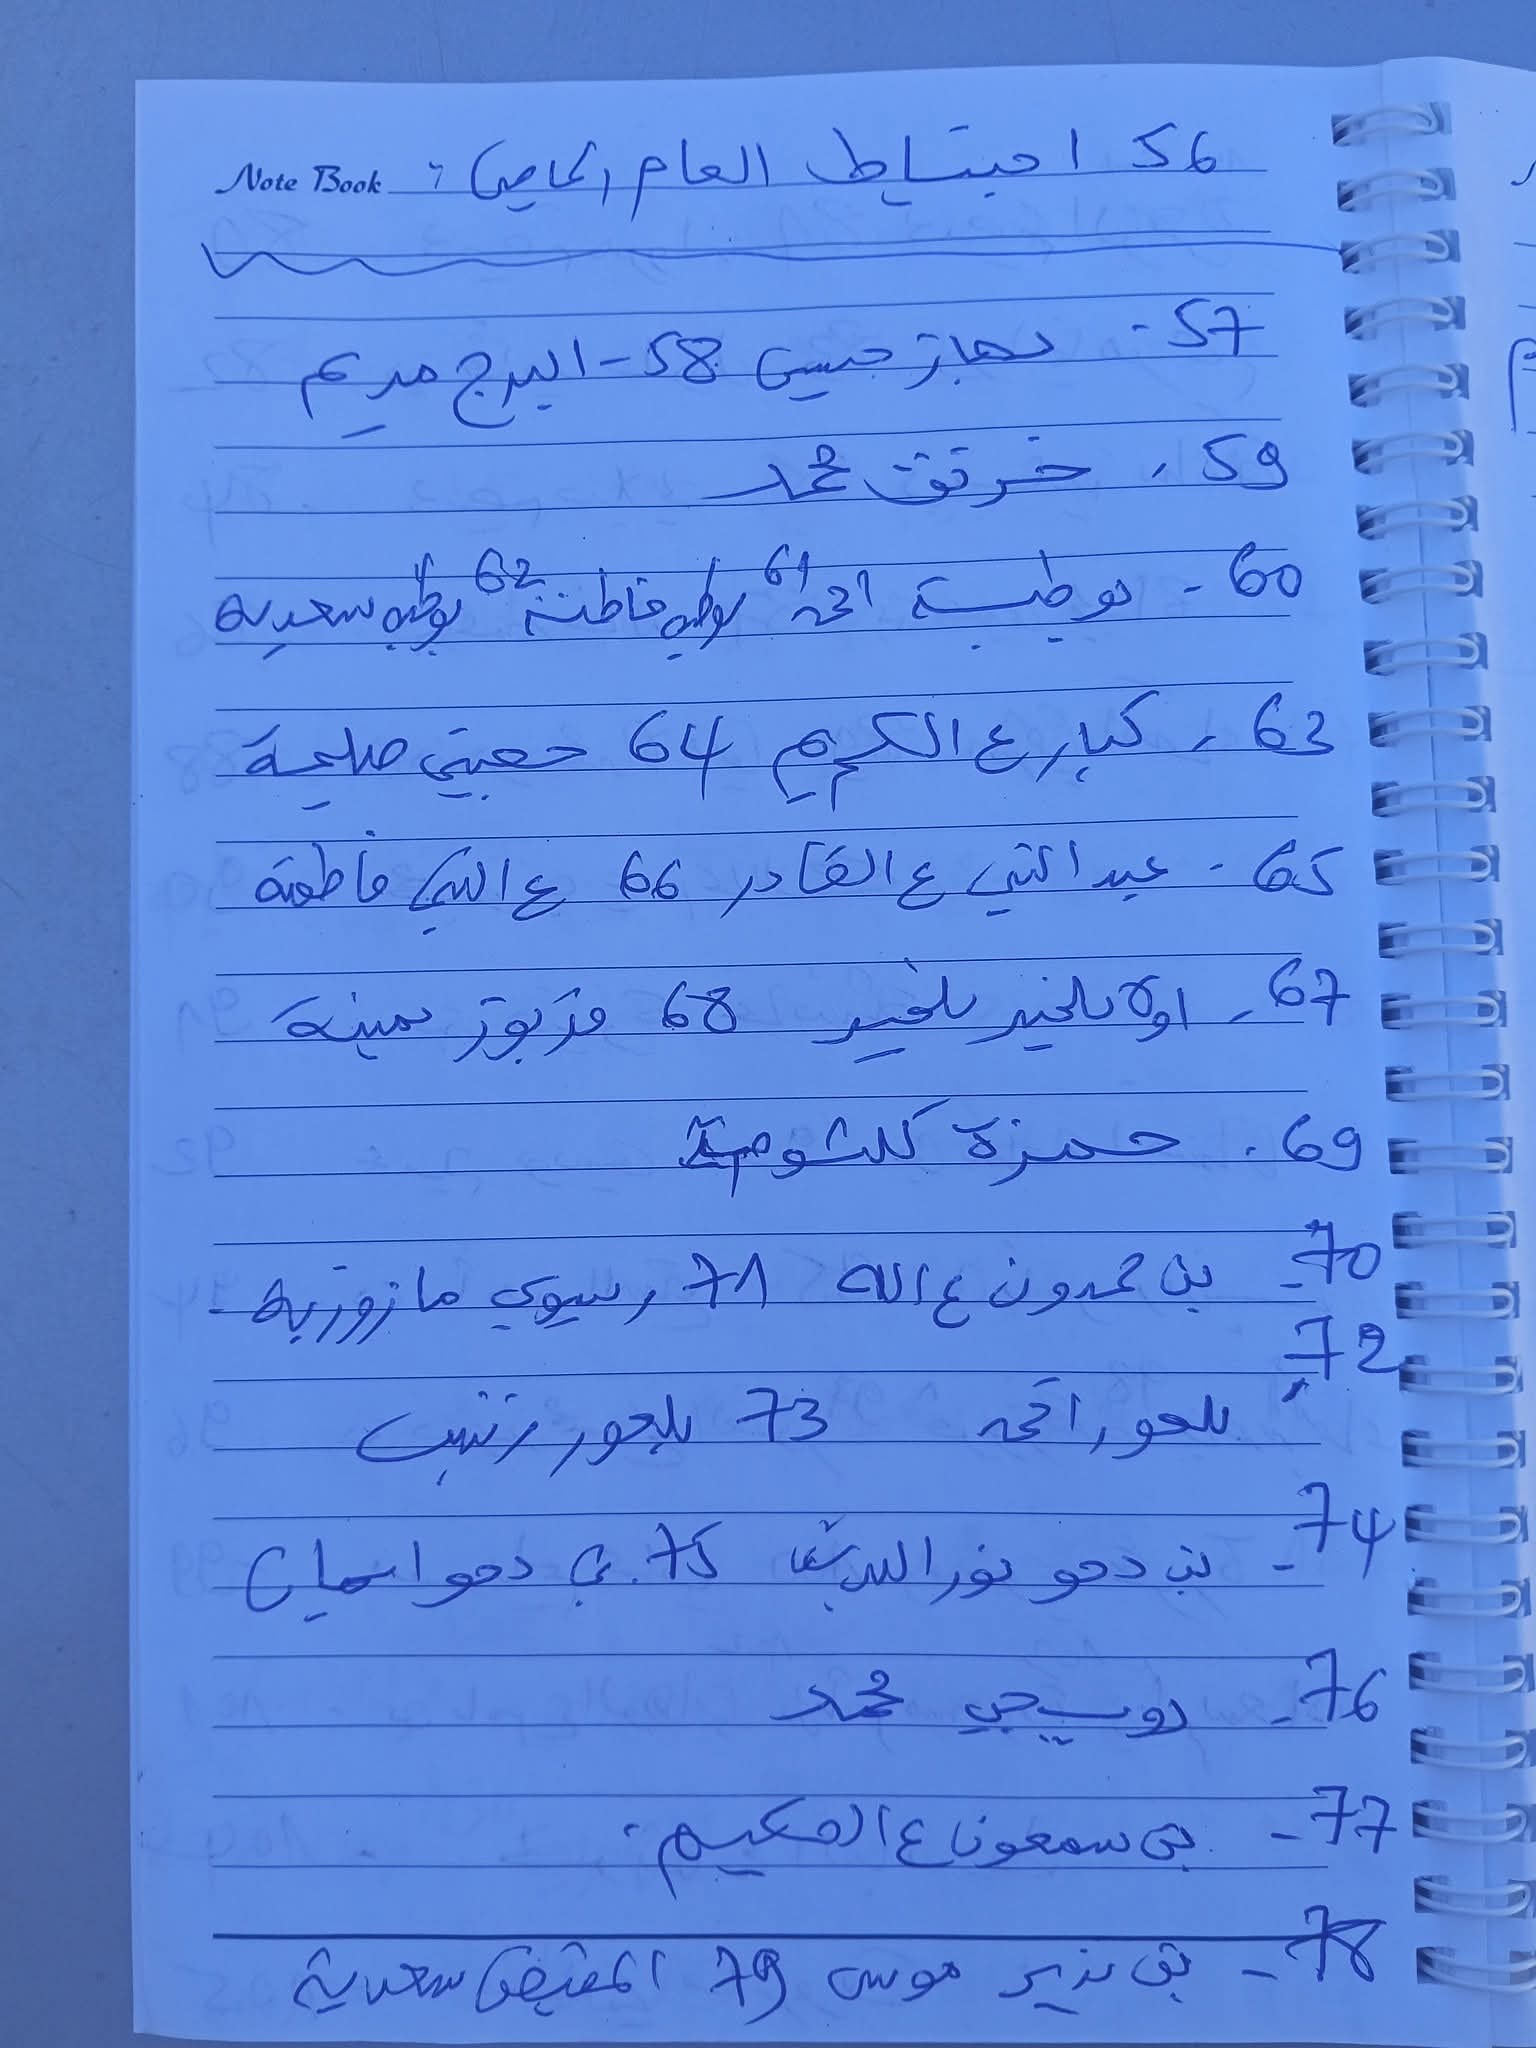 Note Book
56 احتياط العام الماضي :
57- لهاز حبيبي 58- البرج مريم
59 - خرتق محمد
60 - بوطيبة احمد 61 بوطيبة فاطنة 62 بوطيبة سعدية
63 - كبار ع الكريم 64 حعيتي صليحة
65 - عبد النبي ع القادر 66 ع النبي فاطمة
67 - اولاد بلخير بلخير 68 قزبوز يمينة
69 - حمزة كلثومة
70 - بن حمدون ع الله 71 رسيوي مازوزية -
72 - بلعور احمد 73 بلعور زينب
74 - بن دحو نور الدين 75 . بن دحو اسماعيل
76 - دوسيجي محمد
77 - بن سمعون ع الحكيم .
78 - بن نذير موسى 79 المقيض سعدية